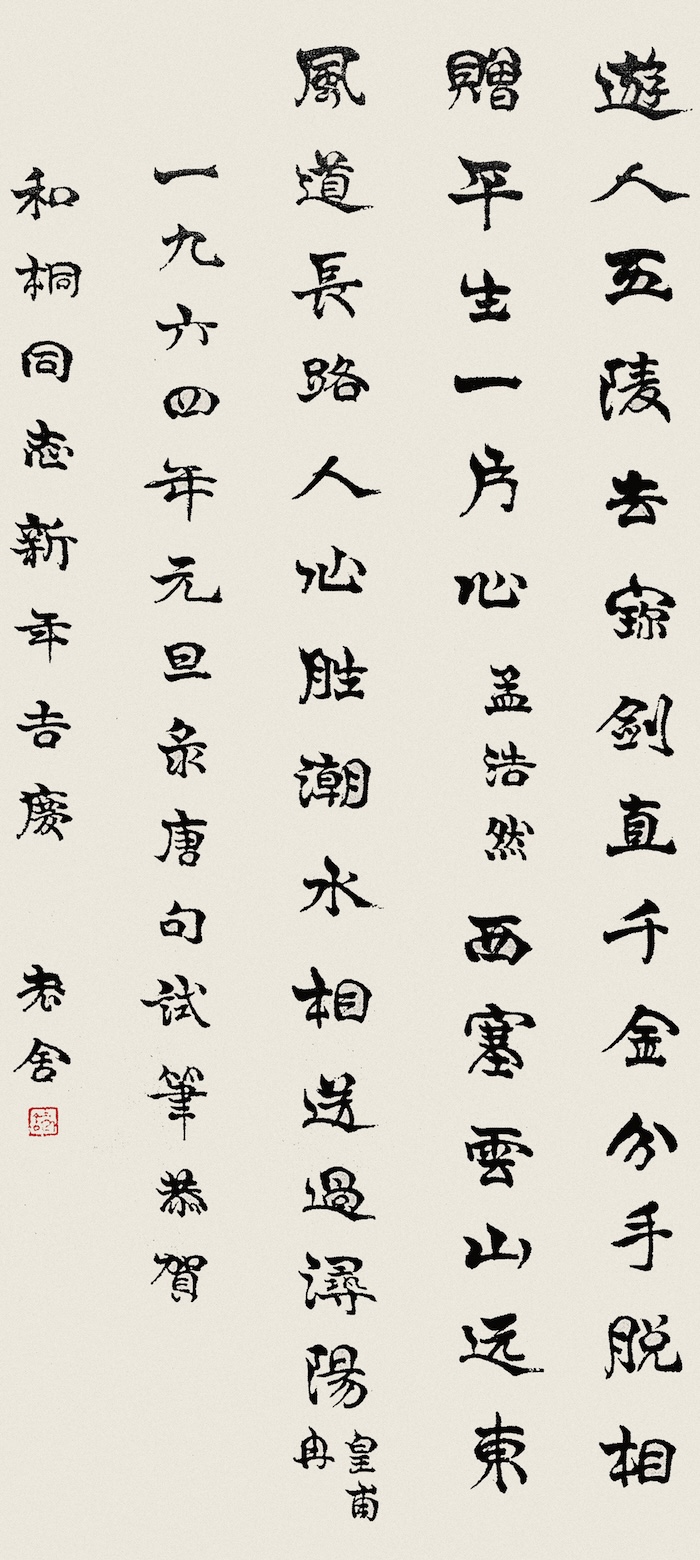 遊人五陵去寶劍直千金分手脱相
贈平生一片心 孟浩然 西塞雲山远東
風道長路人心胜潮水相送過潯陽 皇甫冉
一九六四年元旦录唐句試筆恭賀
和桐同志新年吉慶 老舍